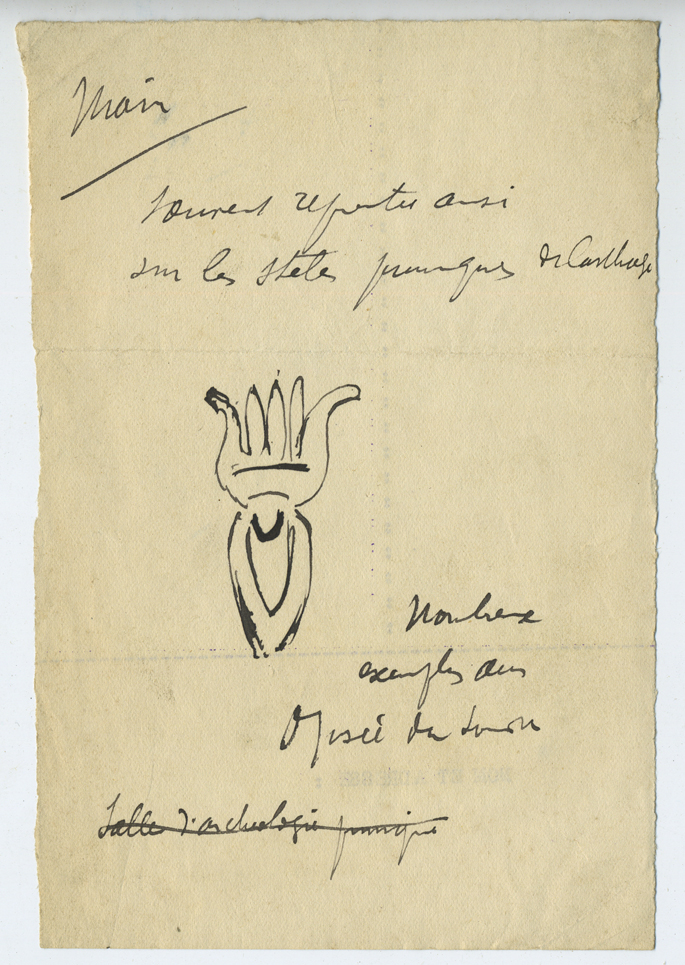 Main
souvent reportée ainsi
sur les stèles puniques de Carthage
Nombreux
exemples au
Musée du Louvre
Salle d'archéologie punique